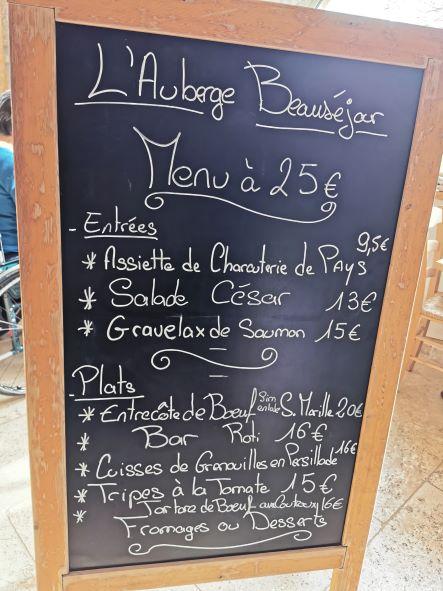 L'Auberge Beauséjour
Menu à 25€
- Entrées
* Assiette de Charcuterie de Pays 9,5€
* Salade César 13€
* Gravelax de Saumon 15€
- Plats
* Entrecôte de Boeuf S. Morille 20€
* Bar Roti 16€
* Cuisses de Grenouilles en Persillade 16€
* Tripes à la Tomate 15€
* Tartare de Boeuf au Couteau 16€
Fromages ou Desserts